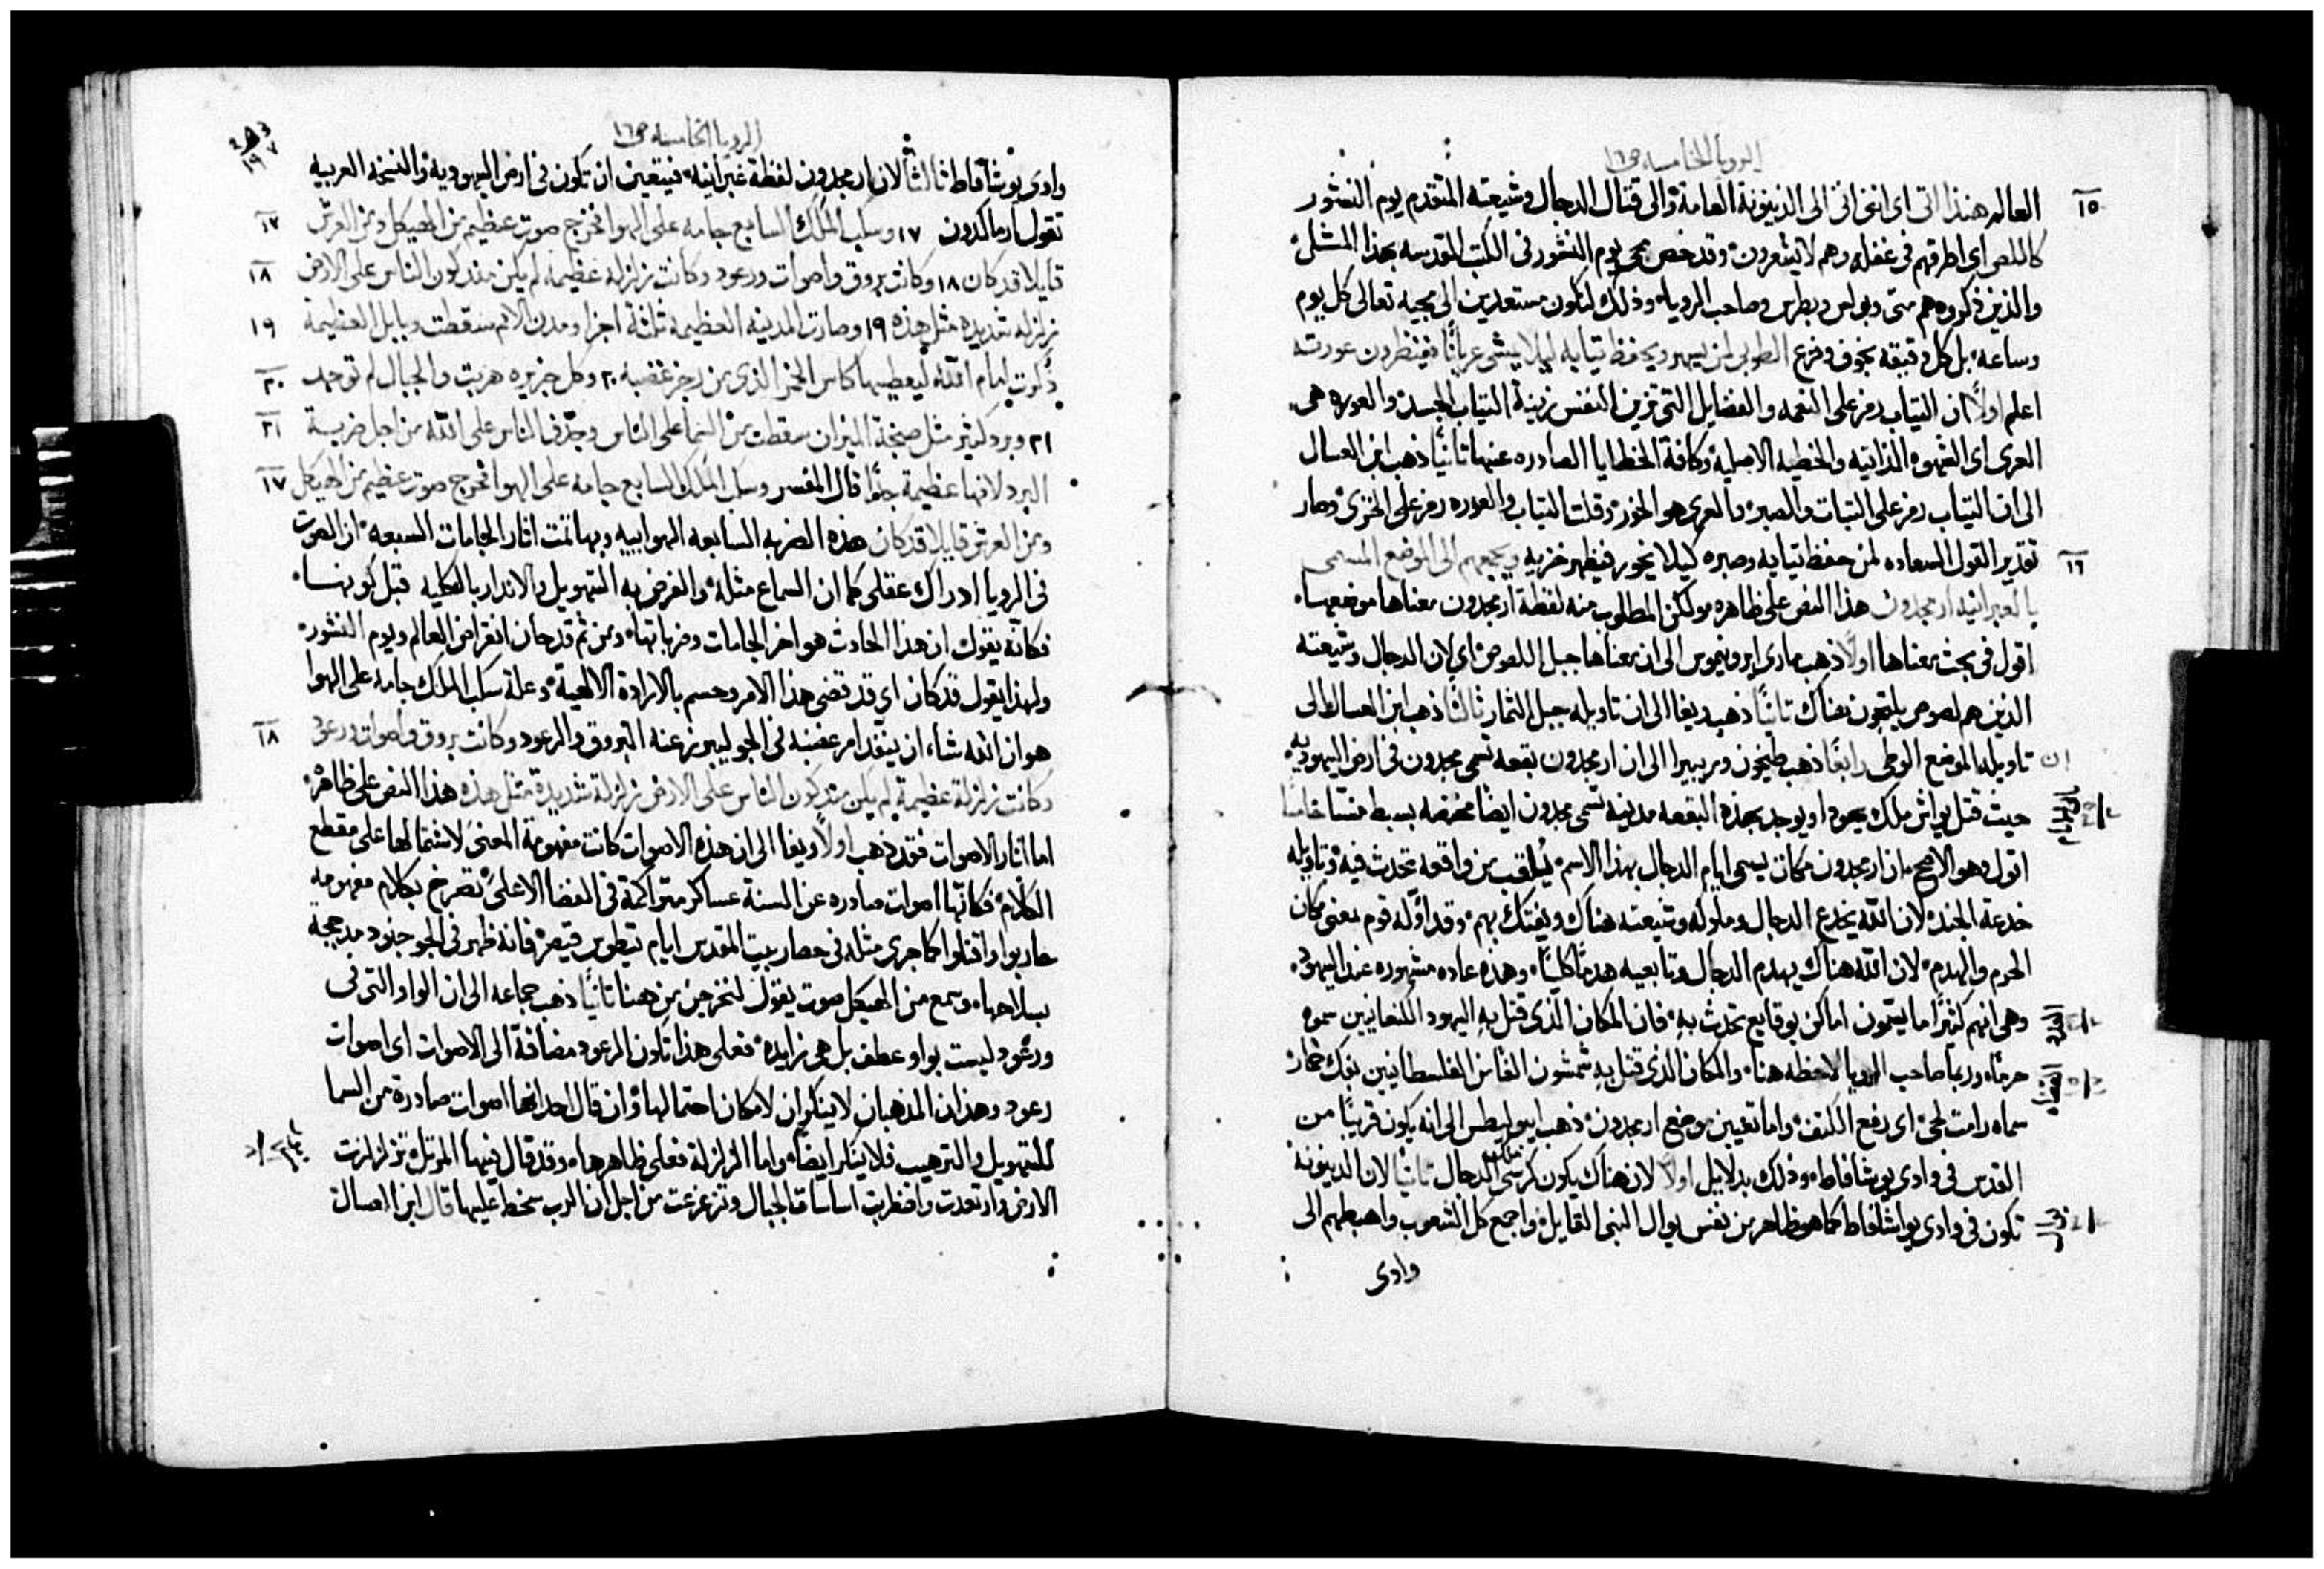 الرويا الخامسه ص١٦
١٥ العالم هنذا اتى اى اننى اتى الى الدينونة العامة والى قتال الدجال وشيعته المتقدم يوم النشور
كاللص اى اطرقهم فى غفله وهم لا يشعرون وقد خص مجى يوم النشور فى الكتب المقدسه بهذا المثل
والذين ذكروه هم متى وبولس وبطرس وصاحب الرويا وذلك لنكون مستعدين الى مجيه تعالى كل يوم
وساعه بل كل دقيقه بخوف وفزع الطوبى لمن يسهر ويحفظ تيابه ليلا يمشى عريانًا فينظرون عورته
اعلم اولاً ان التياب رمز على النعمه والفضايل التى تزين النفس زينة التياب الجسد والعوره هى
العرى اى الشهوه الذاتيه والخطيه الاصليه وكافة الخطايا الصادره عنها تانيًا ذهب ابن العسال
الى ان التياب رمز على التبات والصبر والعرى هو الخور وقلت التياب والعوره رمز على الخزى وصار
١٦ تقدير القول السعاده لمن حفظ تيابه وصبره كيلا يخور فيظهر خزيه ويجمعهم الى الموضع المسمى
بالعبرانيه ارمجدون هذا النص على ظاهره ولكن المطلوب منه لفظة ارمجدون معناها موضعها
اقول فى بحث معناها اولاً ذهب مارى ايرونيموس الى ان معناها جبل اللصوص اى لان الدجال وشيعته
الذين هم لصوص يلتجون هناك تانيًا ذهب ويغا الى ان تاويله جبل الثمار ثالثًا ذهب ابن العسال الى
ان تاويله الموضع الوطى رابعًا ذهب طيخون وبريبيرا الى ان ارمجدون بقعه تسمى مجدون فى ارض اليهوديه
حيث قتل يواش ملك يهودا ويوجد بهذه البقعه مدينه تسمى مجدون ايضا مختصه بسبط منسا خامسًا
اقول وهو الاصح ان ارمجدون مكان يسمى ايام الدجال بهذا الاسم يلقب من واقعه تحدث فيه وتاويله
خدعة الجند لان الله يخدع الدجال وملوكه وشيعته هناك ويفتك بهم وقد اوّله قوم بمعنى مكان
الحرم والهدم لان الله هناك يهدم الدجال وتابعيه هدمًا كليًا وهذه عاده مشهوره عند اليهود
وهى انهم كثيرًا ما يسمون اماكن بوقايع تحدث به فان المكان الذى قتل به اليهود الكنعانيين سموه
حرماه وربما صاحب الرويا لاحظه هنا والمكان الذى قتل به شمشون الفاس الفلسطانيين بفك حمار
سماه رامت لحى اى رفع الكتف واما تعيين موضع ارمجدون ذهب ايبوليطس الى انه يكون قريبًا من
القدس فى وادى يوشافاط وذلك بدلايل اولاً لان هناك يكون كرسى الدجال تانيًا لان الدينونه
تكون فى وادى يواشافاط كما هو ظاهر من نفس يوال النبى القايل واجمع كل الشعوب واهبطهم الى
وادى
الرويا الخامسه ص١٦
وادى يوشافاط ثالثًا لان ارمجدون لفظة عبرانيه فيتعين ان تكون فى ارض اليهوديه والنسخه العربيه
تقول ارماكدون ١٧ وسكب الملك السابع جامه على الهوا فخرج صوت عظيم من الهيكل ومن العرش ١٧
قايلا قد كان ١٨ وكانت بروق واصوات ورعود وكانت زلزله عظيمه لم يكن منذ كون الناس على الارض ١٨
زلزله شديده مثل هذه ١٩ وصارت المدينه العظيمه ثلثة اجزا ومدن الامم سقطت وبابل العظيمة ١٩
ذُكرت امام الله ليعطيها كاس الخمر الذى من رجز غضبه ٢٠ وكل جزيره هربت والجبال لم توجد ٢٠
٢١ وبرد كثير مثل صنجة الميزان سقطت من السما على الناس وجدّف الناس على الله من اجل ضربة ٢١
البرد لانها عظيمة جدًا قال المفسر وسكب الملك السابع جامه على الهوا فخرج صوت عظيم من الهيكل ١٧
ومن العرش قايلا قد كان هذه الضربه السابعه الهواييه وبها تمت اثار الجامات السبعه ان الصوت
فى الرويا ادراك عقلى كما ان السماع مثله والغرض به التهويل والانذار بالكليه قبل كونها
فكانه يقول ان هذا الحادث هو اخر الجامات وضرباتها ومن ثم قد حان انقراض العالم ويوم النشور
ولهذا يقول قد كان اى قد قضى هذا الامر وحسم بالارادة الالهية وعلة سكب الملك جامه على الهوا
هو ان الله شاء ان ينفد امر غضبه فى الجو ليبرز عنه البروق والرعود وكانت بروق واصوات ورعود ١٨
وكانت زلزلة عظيمة لم يكن منذ كون الناس على الارض زلزلة شديدة مثل هذه هذا النص على ظاهره
اما اثار الاصوات فقد ذهب اولاً ويغا الى ان هذه الاصوات كانت مفهومة المعنى لاشتمالها على مقطع
الكلام فكانّها اصوات صادره عن السنة عساكر متراكمة فى الفضا الاعلى تصرخ بكلام مفهومه
حاربوا واقتلوا كما جرى مثله فى حصار بيت المقدس ايام تيطوس قيصر فانه ظهر فى الجو جنود مدججة
بسلاحها وسمع من الهيكل صوت يقول لنخرجن من هنا تانيًا ذهب جماعه الى ان الواو التى فى
ورعود ليست بواو عطف بل هى زايده فعلى هذا تكون الرعود مضافة الى الاصوات اى اصوات
رعود وهذان المذهبان لا ينكران لامكان احتمالها وان قال احد انها اصوات صادرة من السما
للتهويل والترهيب فلا ينكر ايضًا واما الزلزلة فعلى ظاهرها وقد قال فيها المرتل تزلزلت
الارض وارتعدت واضطربت اساسات الجبال وتزعزعت من اجل ان الرب سخط عليها قال ابن العسال